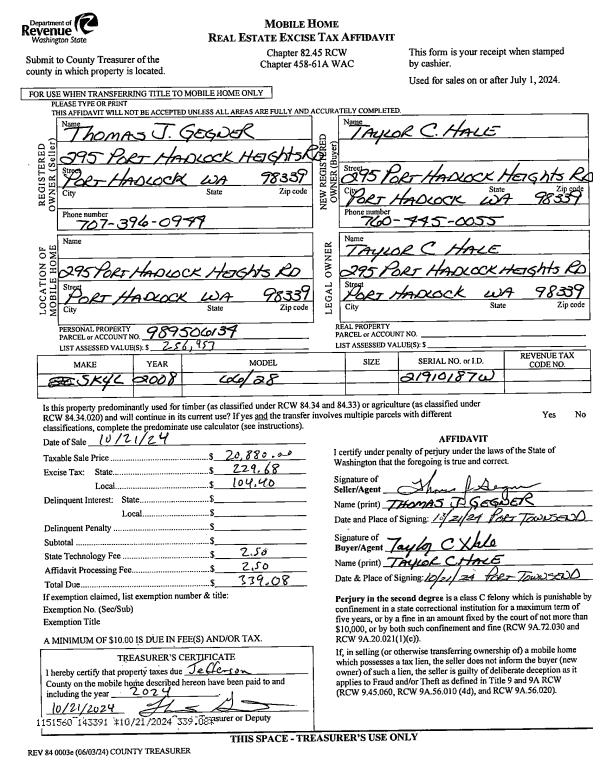 Department of
Revenue
Washington State
MOBILE HOME
REAL ESTATE EXCISE TAX AFFIDAVIT
Submit to County Treasurer of the
county in which property is located.
Chapter 82.45 RCW
Chapter 458-61A WAC
This form is your receipt when stamped
by cashier.
Used for sales on or after July 1, 2024.
FOR USE WHEN TRANSFERRING TITLE TO MOBILE HOME ONLY
PLEASE TYPE OR PRINT
THIS AFFIDAVIT WILL NOT BE ACCEPTED UNLESS ALL AREAS ARE FULLY AND ACCURATELY COMPLETED.
REGISTERED
OWNER (Seller)
Name
THOMAS J. GEGNER
295 PORT HADLOCK HEIGHTS RD
Street
PORT HADLOCK WA 98339
City State Zip code
Phone number
707-396-0949
NEW REGISTERED
OWNER (Buyer)
Name
TAYLOR C. HALE
295 PORT HADLOCK HEIGHTS RD
Street
PORT HADLOCK WA 98339
City State Zip code
Phone number
760-445-0055
LOCATION OF
MOBILE HOME
Name
295 PORT HADLOCK HEIGHTS RD
Street
PORT HADLOCK WA 98339
City State Zip code
LEGAL OWNER
Name
TAYLOR C HALE
295 PORT HADLOCK HEIGHTS RD
Street
PORT HADLOCK WA 98339
City State Zip code
PERSONAL PROPERTY
PARCEL or ACCOUNT NO. 989506134
LIST ASSESSED VALUE(S): $ 256,957
REAL PROPERTY
PARCEL or ACCOUNT NO.
LIST ASSESSED VALUE(S): $
MAKE YEAR MODEL SIZE SERIAL NO. or I.D. REVENUE TAX CODE NO.
SKYL 2008 66/28 21910187W
Is this property predominantly used for timber (as classified under RCW 84.34 and 84.33) or agriculture (as classified under
RCW 84.34.020) and will continue in its current use? If yes and the transfer involves multiple parcels with different
classifications, complete the predominate use calculator (see instructions). Yes No
Date of Sale 10/21/24
Taxable Sale Price $ 20,880.00
Excise Tax: State $ 229.68
Local $ 104.40
Delinquent Interest: State $
Local $
Delinquent Penalty $
Subtotal $
State Technology Fee $ 2.50
Affidavit Processing Fee $ 2.50
Total Due $ 339.08
If exemption claimed, list exemption number & title:
Exemption No. (Sec/Sub)
Exemption Title
A MINIMUM OF $10.00 IS DUE IN FEE(S) AND/OR TAX.
TREASURER'S CERTIFICATE
I hereby certify that property taxes due Jefferson
County on the mobile home described hereon have been paid to and
including the year 2024
10/21/2024
Treasurer or Deputy
1151560 143391 *10/21/2024 339.08*
AFFIDAVIT
I certify under penalty of perjury under the laws of the State of
Washington that the foregoing is true and correct.
Signature of
Seller/Agent
Name (print) THOMAS J. GEGNER
Date and Place of Signing: 10/21/24 PORT TOWNSEND
Signature of
Buyer/Agent Taylor C Hale
Name (print) TAYLOR C. HALE
Date & Place of Signing: 10/21/24 PORT TOWNSEND
Perjury in the second degree is a class C felony which is punishable by
confinement in a state correctional institution for a maximum term of
five years, or by a fine in an amount fixed by the court of not more than
$10,000, or by both such confinement and fine (RCW 9A.72.030 and
RCW 9A.20.021(1)(c)).
If, in selling (or otherwise transferring ownership of) a mobile home
which possesses a tax lien, the seller does not inform the buyer (new
owner) of such a lien, the seller is guilty of deliberate deception as it
applies to Fraud and/or Theft as defined in Title 9 and 9A RCW
(RCW 9.45.060, RCW 9A.56.010 (4d), and RCW 9A.56.020).
THIS SPACE - TREASURER'S USE ONLY
REV 84 0003e (06/03/24) COUNTY TREASURER